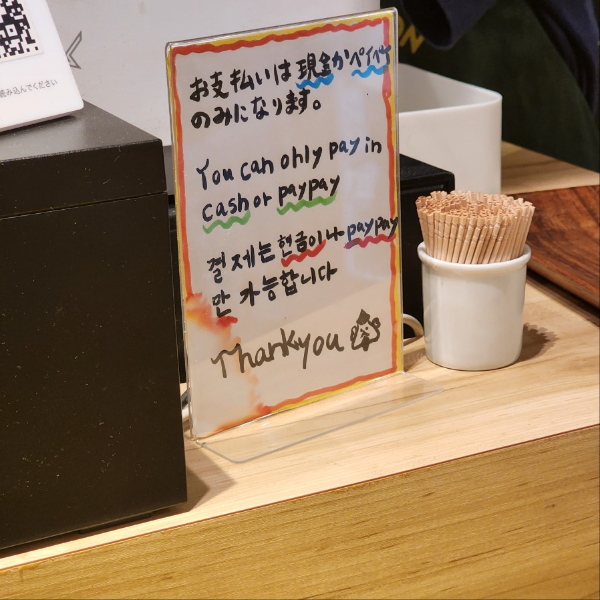 み込んでください
ON
お支払いは現金かペイペイ
のみになります。
You can only pay in
cash or paypay
결제는 현금이나 paypay
만 가능합니다
Thank you